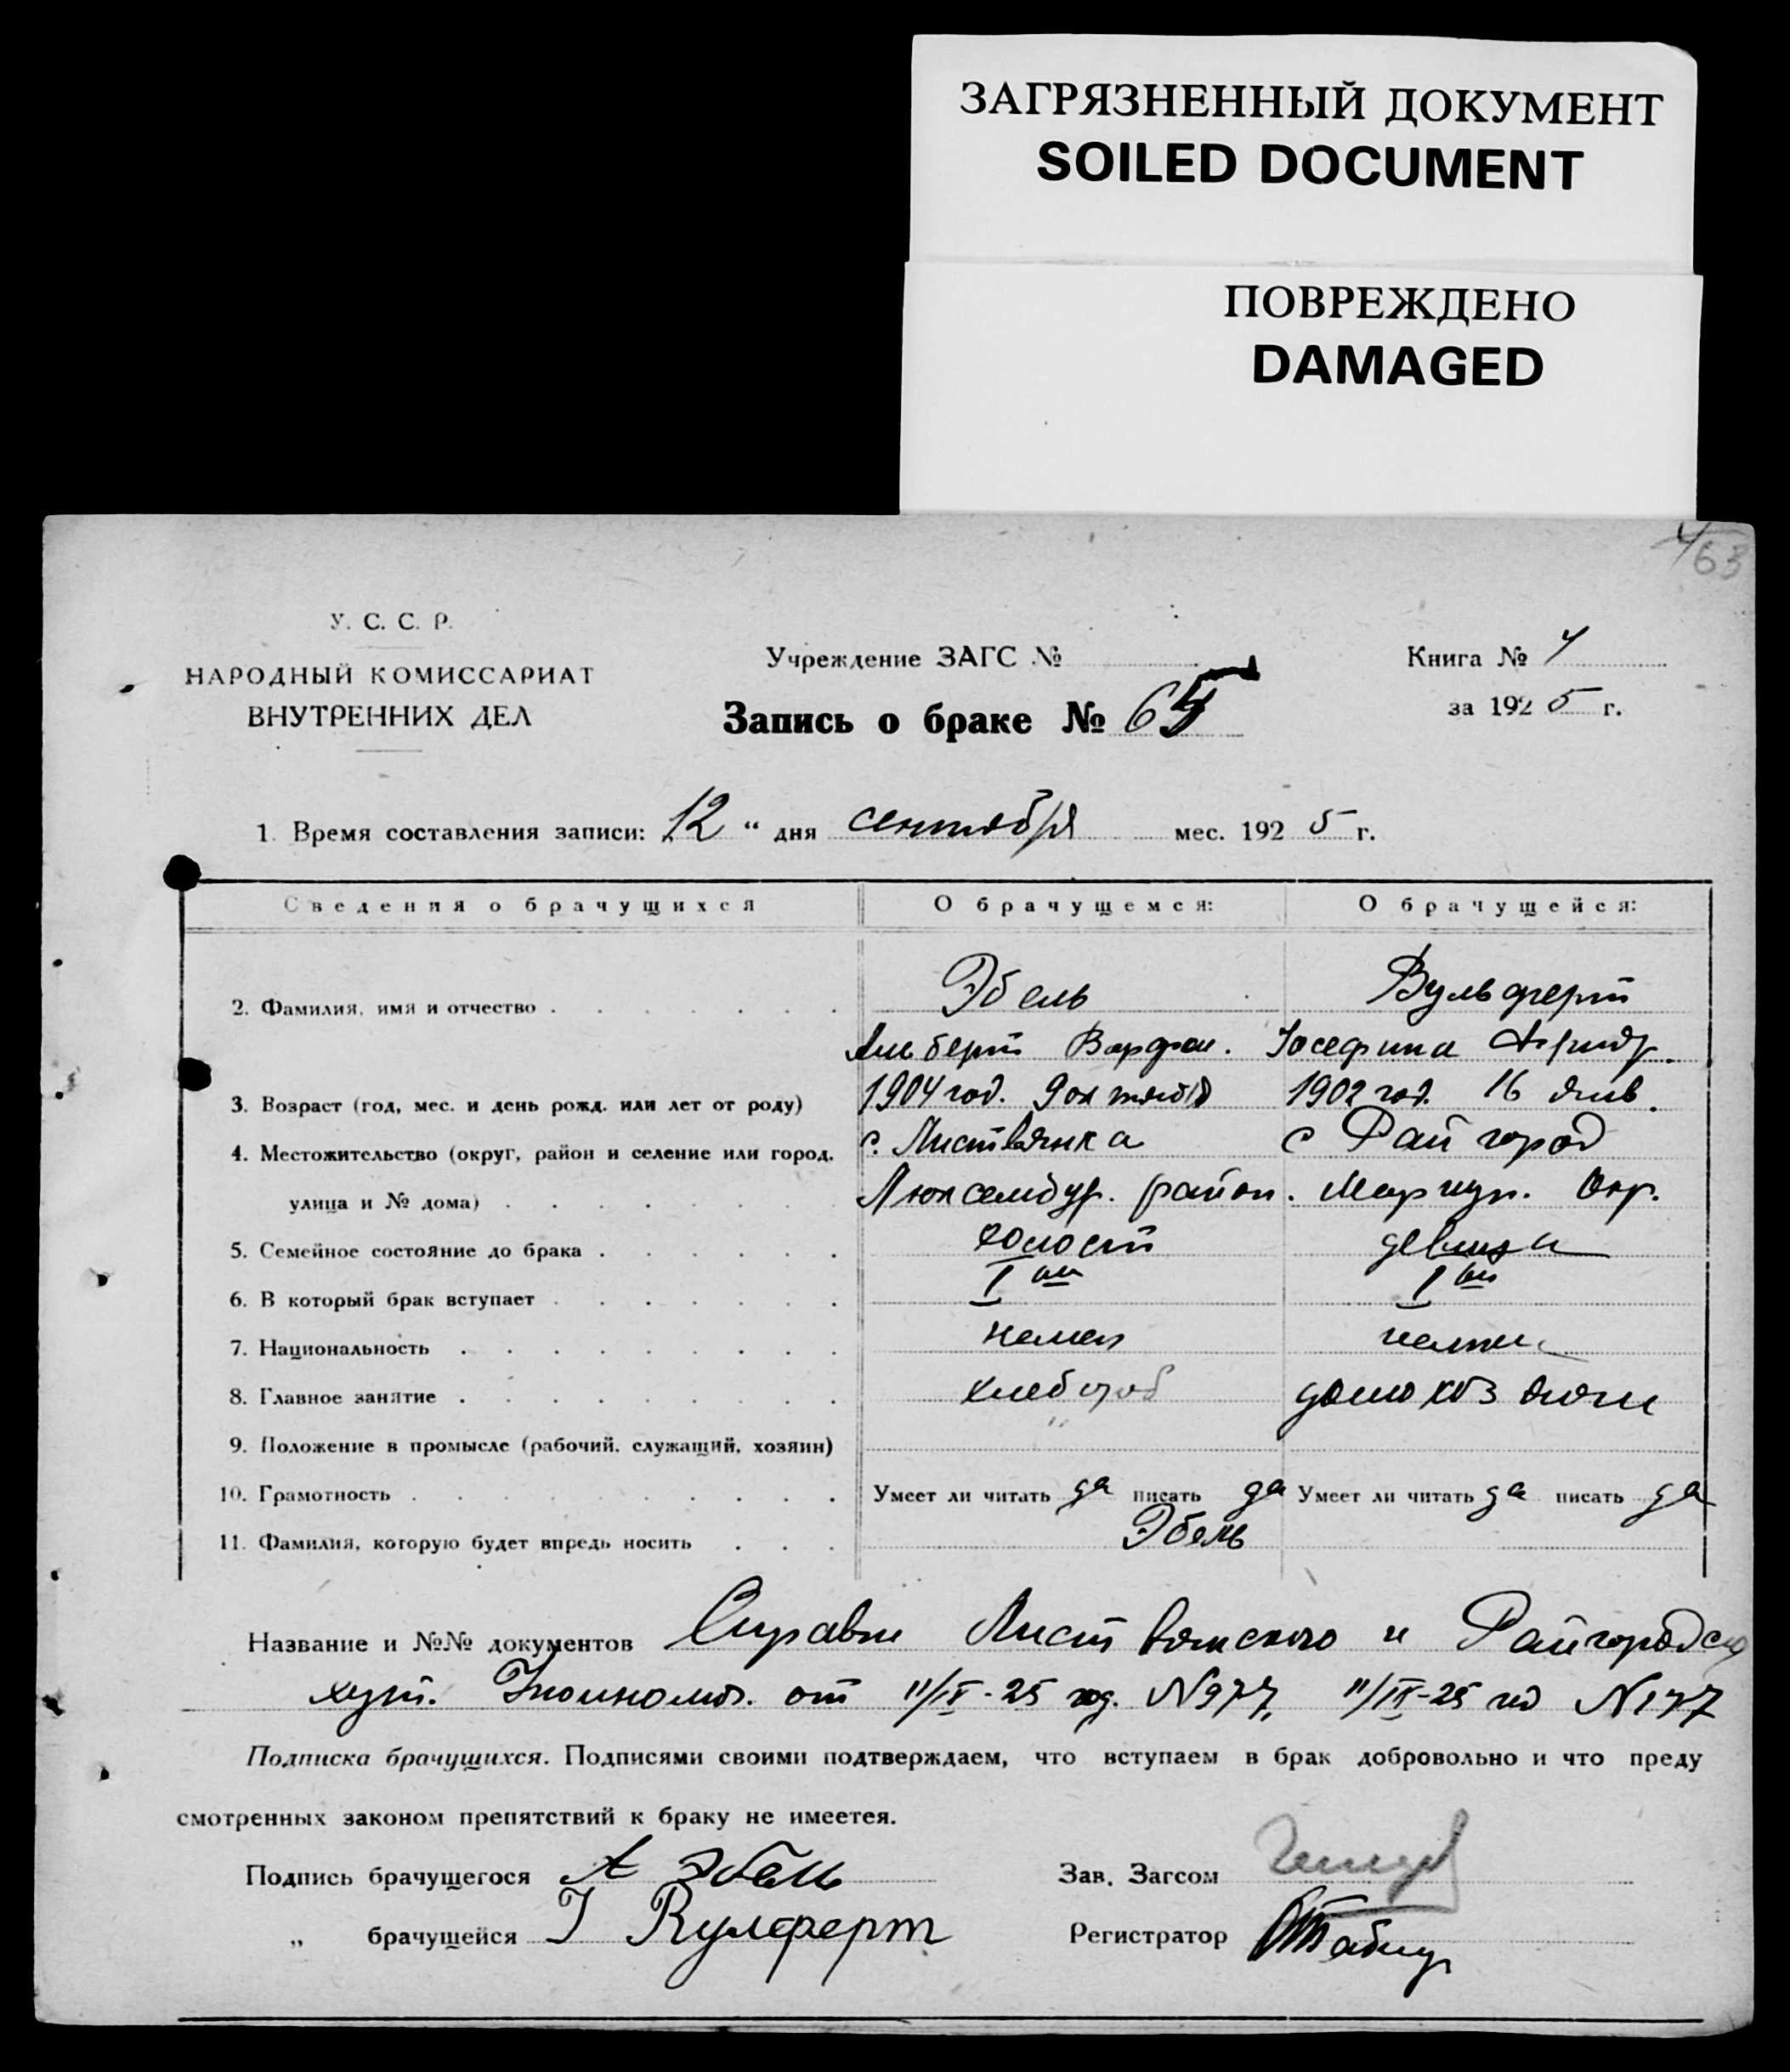 ЗАГРЯЗНЕННЫЙ ДОКУМЕНТ
SOILED DOCUMENT
ПОВРЕЖДЕНО
DAMAGED
63
У. С. С. Р.
НАРОДНЫЙ КОМИССАРИАТ
ВНУТРЕННИХ ДЕЛ
Учреждение ЗАГС №
Запись о браке № 65
Книга №
за 1925 г.
1. Время составления записи: 12 “ дня сентября мес. 1925 г.
Сведения о брачущихся О брачущемся: О брачущейся:
2. Фамилия, имя и отчество Эбель Вульферт
Альберт Варфол. Иосефина
3. Возраст (год, мес. и день рожд. или лет от роду) 1904 год. 9 октября 1902 год. 16 янв.
4. Местожительство (округ, район и селение или город, с. Листвянка с Райгород
улица и № дома) Люксембур. район. Мариуп. Окр.
5. Семейное состояние до брака холост девица
6. В который брак вступает I ый I ый
7. Национальность немец немка
8. Главное занятие хлебороб домохозяйн
9. Положение в промысле (рабочий, служащий, хозяин)
10. Грамотность Умеет ли читать да писать да Умеет ли читать да писать да
11. Фамилия, которую будет впредь носить Эбель
Название и №№ документов Справки Листвянского и Райгородско
хут. от 11/IX-25 год. N 977, 11/IX-25 год N 177
Подписка брачущихся. Подписями своими подтверждаем, что вступаем в брак добровольно и что преду
смотренных законом препятствий к браку не имеетея.
Подпись брачущегося А Эбель Зав. Загсом
„ брачущейся I Вулферт Регистратор